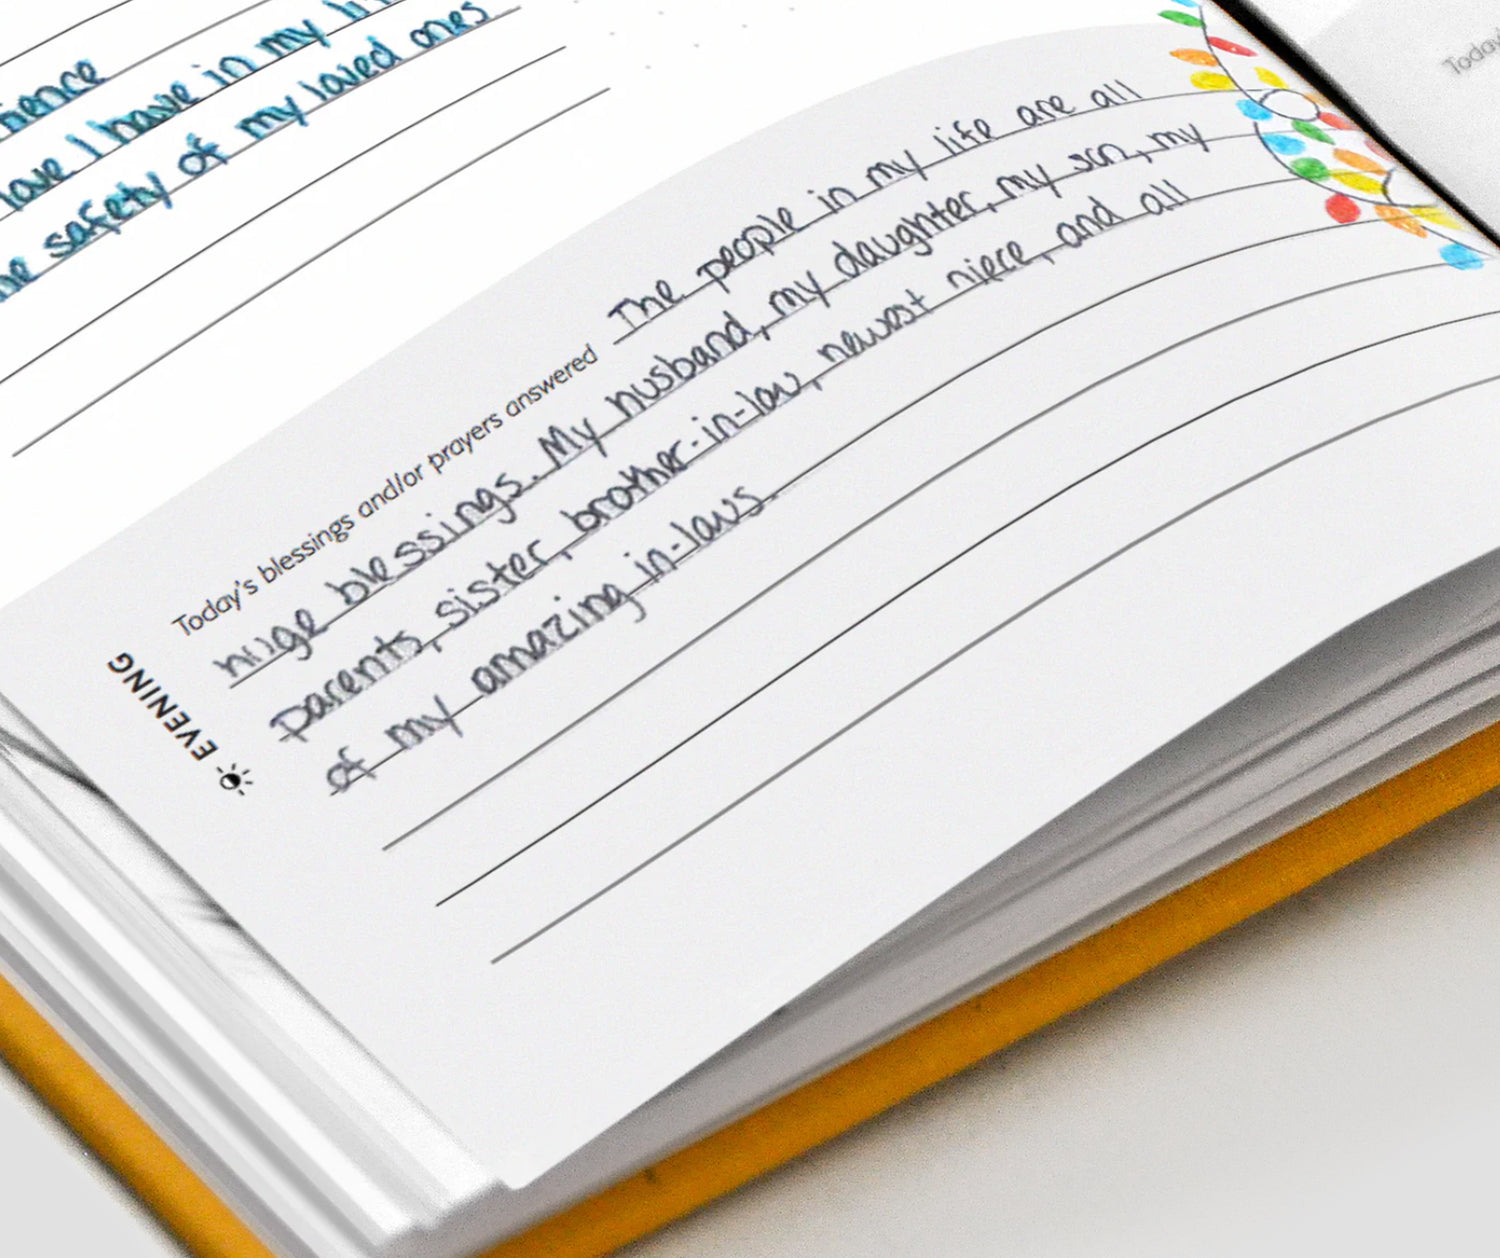 love I have in my
safety of my loved ones
EVENING
Today's blessings and/or prayers answered The people in my life are all
huge blessings. My husband, my daughter, my son, my
parents, sister, brother-in-law, newest niece, and all
of my amazing in-laws.
Today